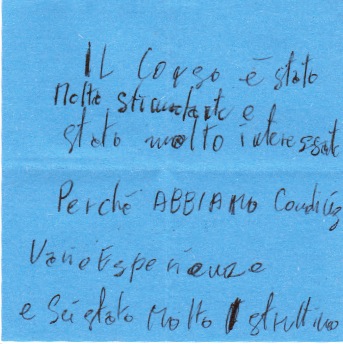 IL Corso è stato
Molto stimolante e
stato molto interessate
Perché ABBIAMO Condivis
Vario Esperienze
e Sei stato Molto Istruttivo